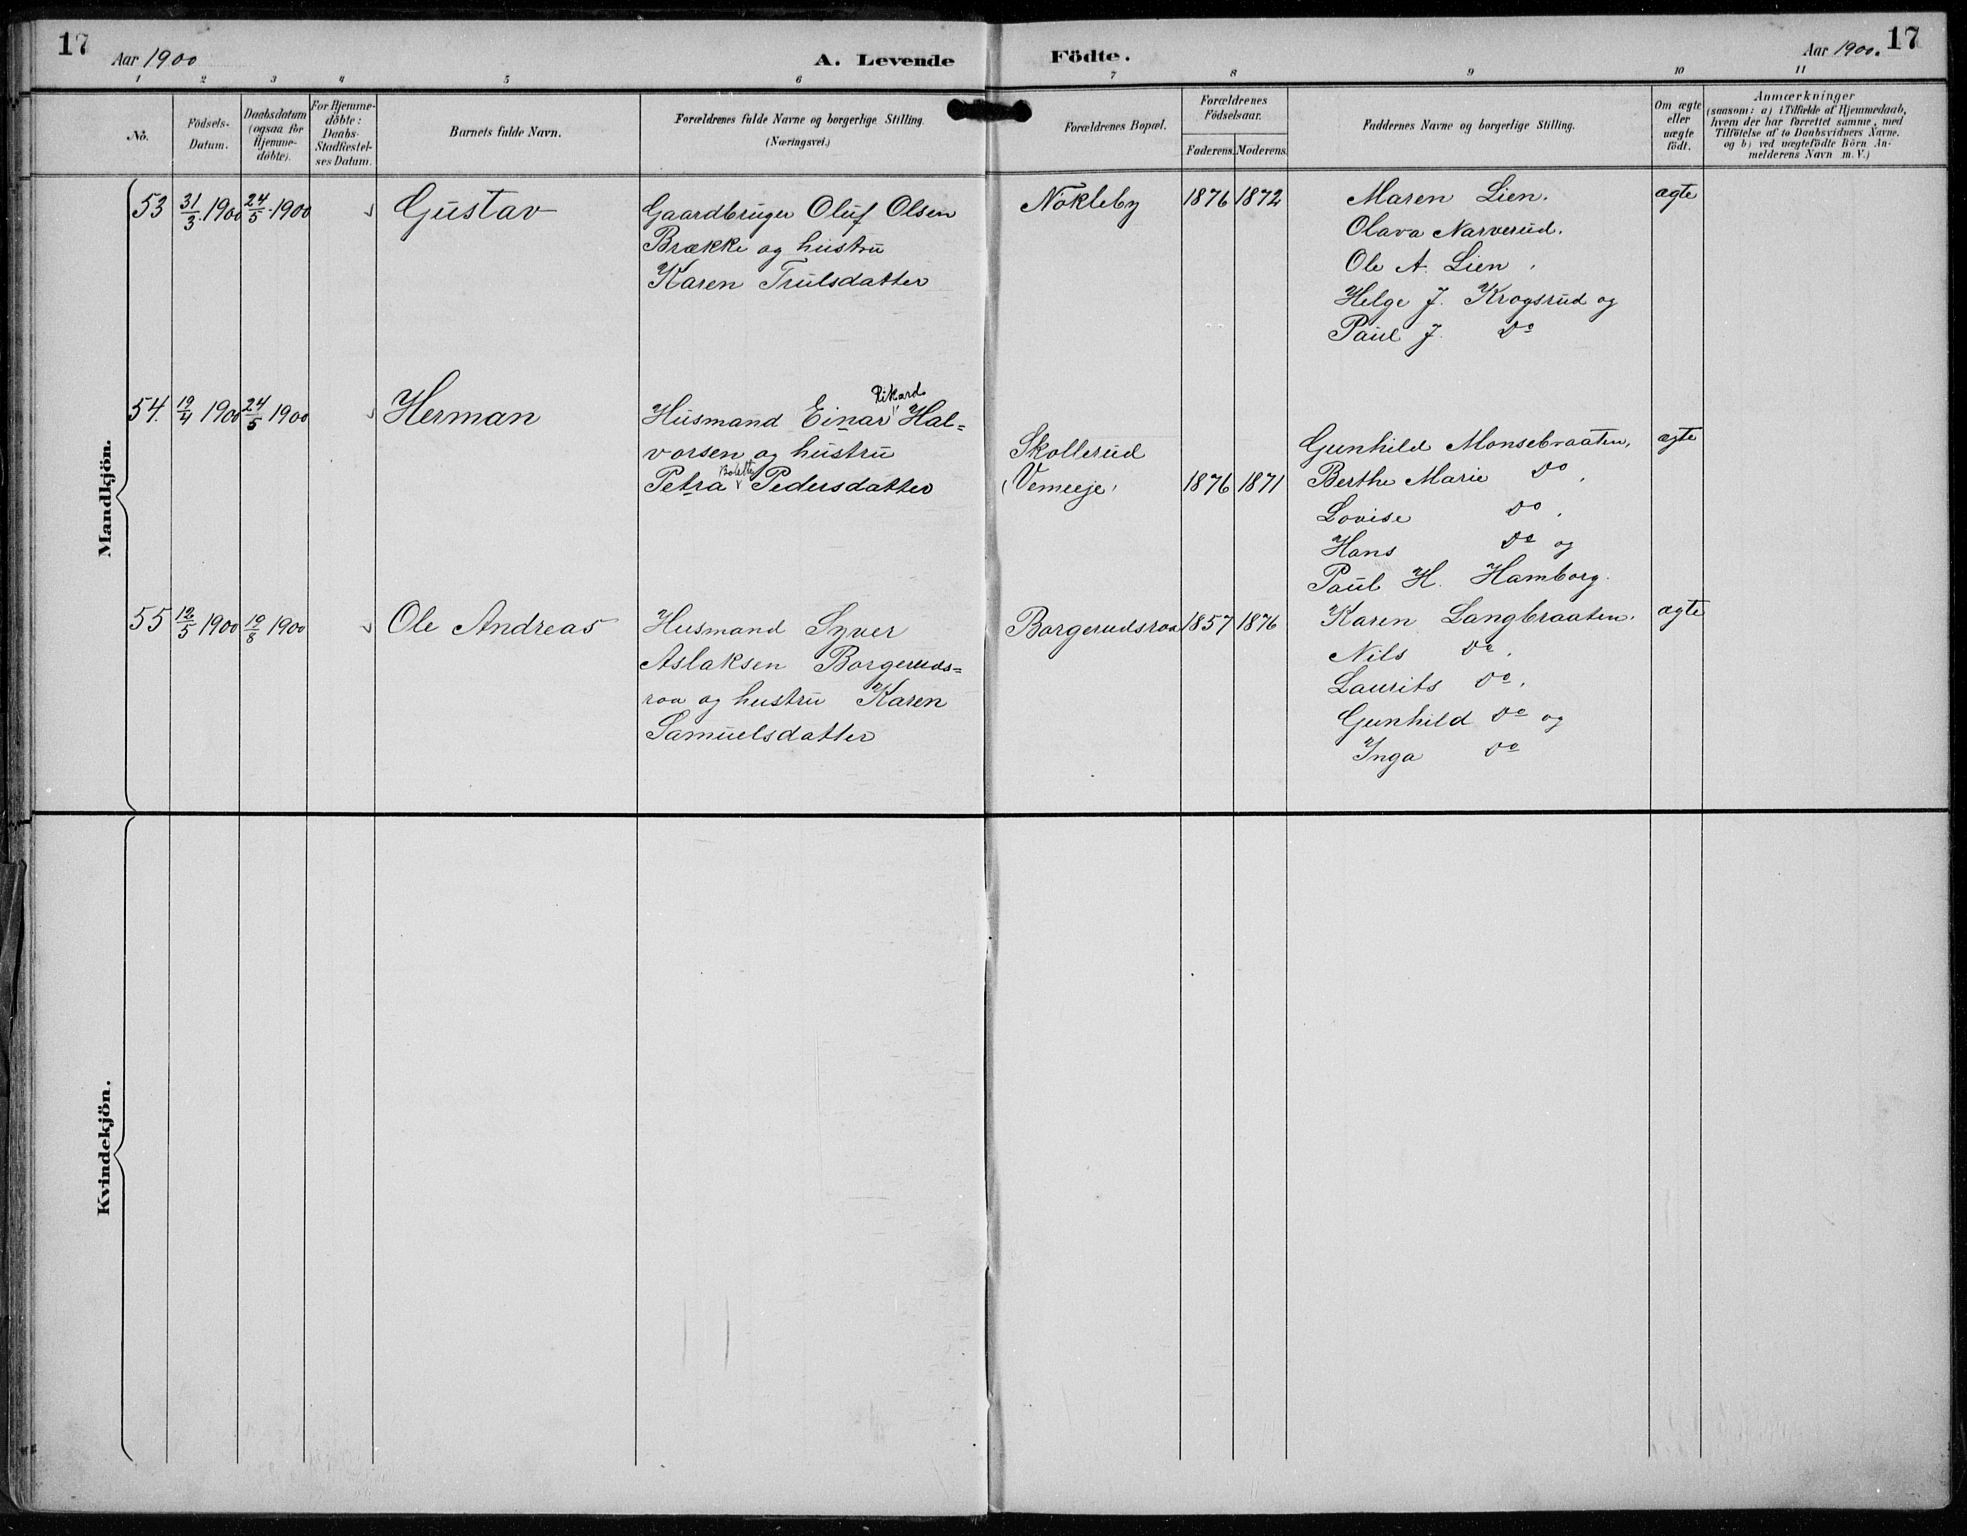 17
Aar 1900
A. Levende
Födte.
Aar 1900.
17
1 2 3 4 5 6 7 8 9 10 11
No.
Födsels-
Datum.
Daabsdatum
(ogsaa for
Hjemme-
döbte).
For Hjemme-
döbte:
Daabs-
Stadfæstel-
ses Datum.
Barnets fulde Navn.
Forældrenes fulde Navne og borgerlige Stilling
(Næringsvei.)
Forældrenes Bopæl.
Forældrenes
Födselsaar.
Faderens. Moderens.
Faddernes Navne og borgerlige Stilling.
Om ægte
eller
uægte
födt.
Anmærkninger
(saasom: a) i Tilfælde af Hjemmedaab,
hvem der har forrettet samme, med
Tilföielse af to Daabsvidners Navne.
og b) ved uægtefödte Börn An-
melderens Navn m. V.)
Mandkjön.
53 31/3 1900 24/5 1900 Gustav
Gaardbruger Oluf Olsen
Brække og hustru
Karen Trulsdatter
Nökleby 1876 1872
Maren Lien.
Olava Narverud.
Ole A. Lien.
Helge J. Krogsrud og
Paul J. Do
ægte
54. 19/4 1900 24/5 1900 Herman
Rikard
Husmand Einar Hal=
vorsen og hustru
Bolette
Petra Pedersdatter
Skollerud
(Vemeeje) 1876 1871
Gunhild Monsebraaten,
Berthe Marie Do,
Lovise Do.
Hans Do og
Paul H. Hamborg.
ægte
55 12/5 1900 19/8 1900 Ole Andreas
Husmand Syver
Aslaksen Borgeruds=
roa og hustru Karen
Samuelsdatter
Borgerudsroa 1857 1876
Karen Langbraaten.
Nils Do.
Laurits Do.
Gunhild Do og
Inga Do
ægte
Kvindekjön.